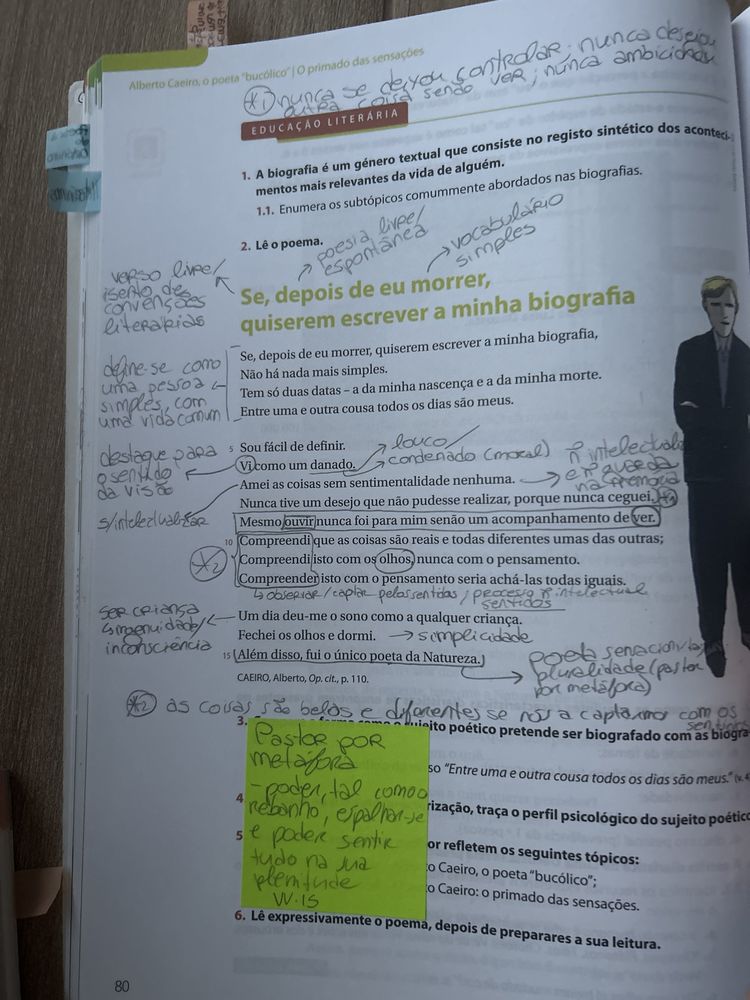 Alberto Caeiro, o poeta "bucólico" | O primado das sensações
*1 nunca se deixou controlar; nunca desejou
outra coisa senão ver; nunca ambicionou
EDUCAÇÃO LITERÁRIA
1. A biografia é um género textual que consiste no registo sintético dos aconteci-
mentos mais relevantes da vida de alguém.
1.1. Enumera os subtópicos comummente abordados nas biografias.
2. Lê o poema.
poesia livre/
espontânea
vocabulário
simples
verso livre/
isento de
convenções
literárias
Se, depois de eu morrer,
quiserem escrever a minha biografia
define-se como
uma pessoa
simples, com
uma vida comum
Se, depois de eu morrer, quiserem escrever a minha biografia,
Não há nada mais simples.
Tem só duas datas – a da minha nascença e a da minha morte.
Entre uma e outra cousa todos os dias são meus.
destaque para
o sentido
da visão
louco/
condenado (moral)
ñ intelectuali
e ñ guarda
na memória
5 Sou fácil de definir.
Vi como um danado.
Amei as coisas sem sentimentalidade nenhuma.
s/intelectualizar
Nunca tive um desejo que não pudesse realizar, porque nunca ceguei. *1
Mesmo ouvir nunca foi para mim senão um acompanhamento de ver.
10 Compreendi que as coisas são reais e todas diferentes umas das outras;
*2
Compreendi isto com os olhos, nunca com o pensamento.
Compreender isto com o pensamento seria achá-las todas iguais.
observar/captar pelos sentidos; processo ñ intelectual
sentidos
ser criança
ingenuidade/
inconsciência
Um dia deu-me o sono como a qualquer criança.
Fechei os olhos e dormi.
simplicidade
15 Além disso, fui o único poeta da Natureza.
poeta sensacionista
pluralidade (pastor
por metáfora)
CAEIRO, Alberto, Op. cit., p. 110.
*2 as coisas são belas e diferentes se nós a captarmos com os
sentidos
3. sujeito poético pretende ser biografado com as biogra
so "Entre uma e outra cousa todos os dias são meus." (v. 4
4 rização, traça o perfil psicológico do sujeito poético
5 or refletem os seguintes tópicos:
o Caeiro, o poeta "bucólico";
o Caeiro: o primado das sensações.
Pastor por
metáfora
- poder, tal como o
rebanho, espalhar-se
e poder sentir
tudo na sua
plenitude
VV.15
6. Lê expressivamente o poema, depois de preparares a sua leitura.
80